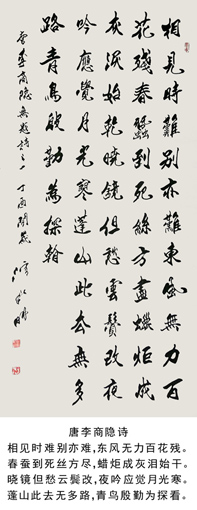 相見時難別亦難東風無力百
花殘春蠶到死絲方盡蠟炬成
灰淚始乾曉鏡但愁雲鬢改夜
吟應覺月光寒蓬山此去無多
路青鳥殷勤為探看
李商隱無題詩之一丁酉
唐李商隐诗
相见时难别亦难,东风无力百花残。
春蚕到死丝方尽,蜡炬成灰泪始干。
晓镜但愁云鬓改,夜吟应觉月光寒。
蓬山此去无多路,青鸟殷勤为探看。